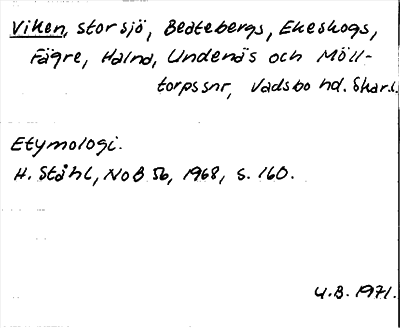 Viken, stor sjö, Beatebergs, Ekeskogs,
Fägre, Halna, Undenäs och Möll-
torps snr, Vadsbo hd. Skarb.
Etymologi.
H. Ståhl, NoB 56, 1968, s. 160.
U.B. 1971.